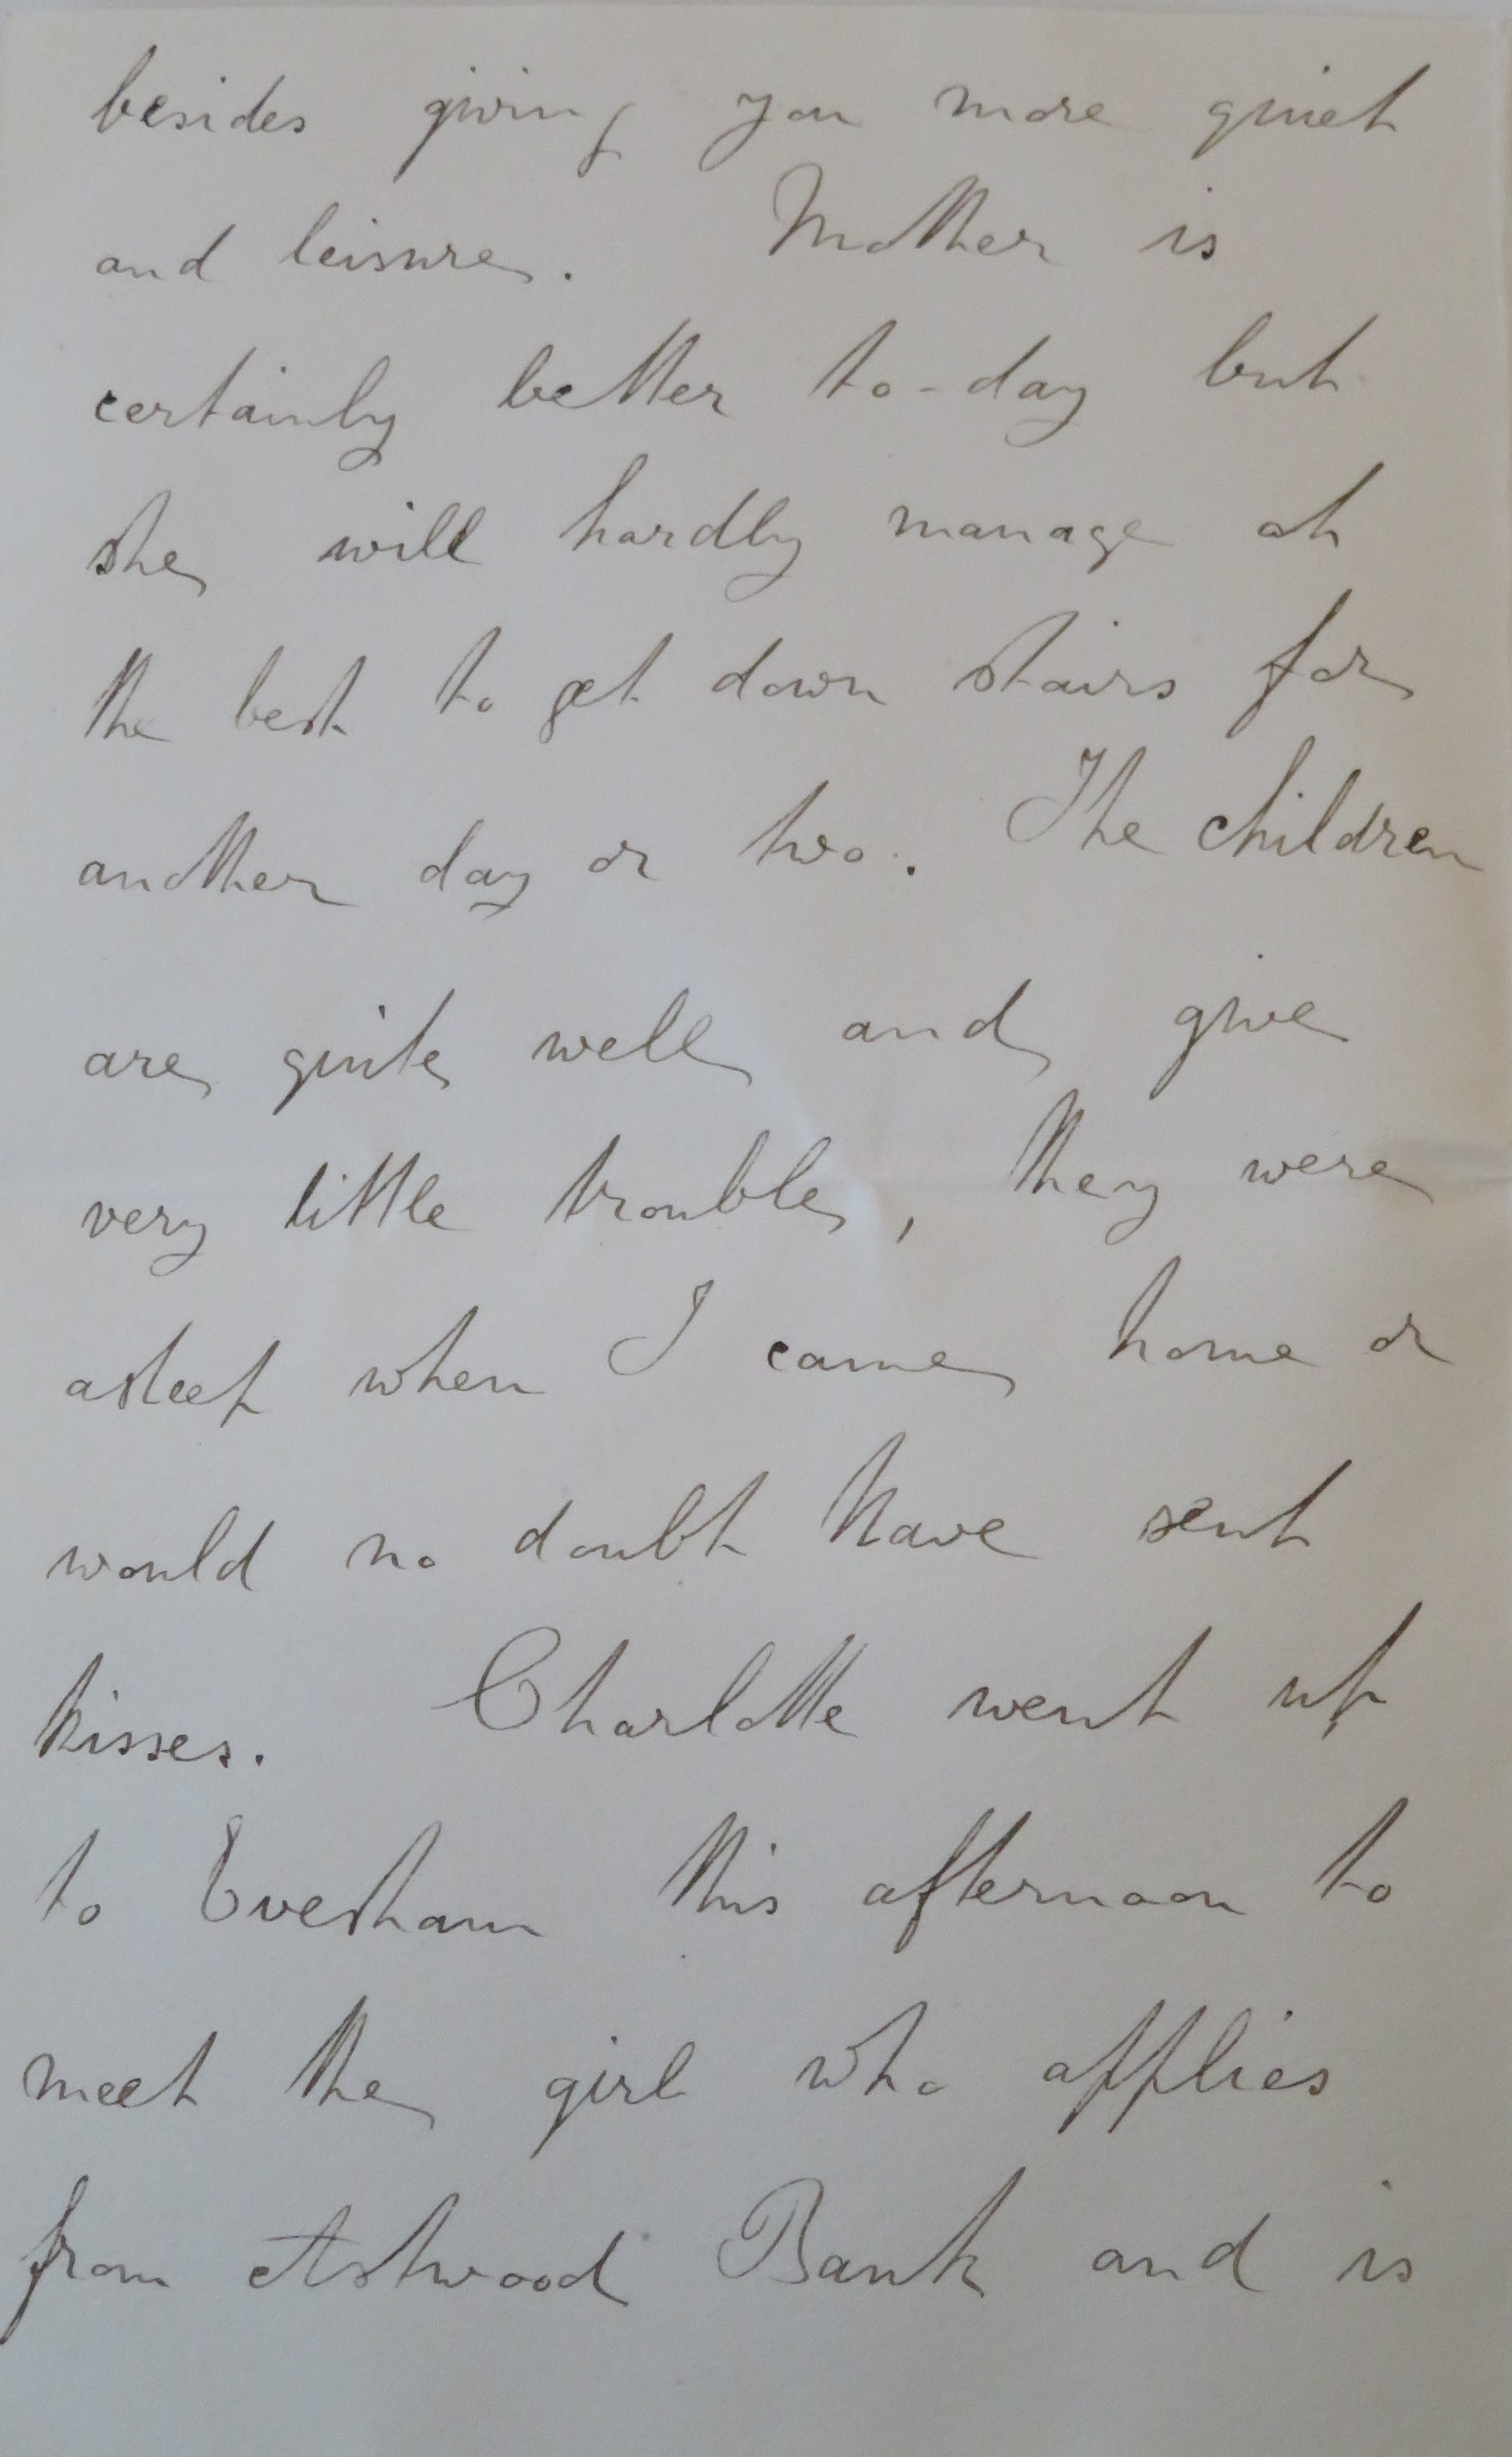 besides giving you more quiet
and leisure. Mother is
certainly better to-day but
she will hardly manage at
the best to get down stairs for
another day or two. The children
are quite well and give
very little trouble, they were
asleep when I came home or
would no doubt have sent
kisses. Charlotte went up
to Evesham this afternoon to
meet the girl who applies
from Astwood Bank and is